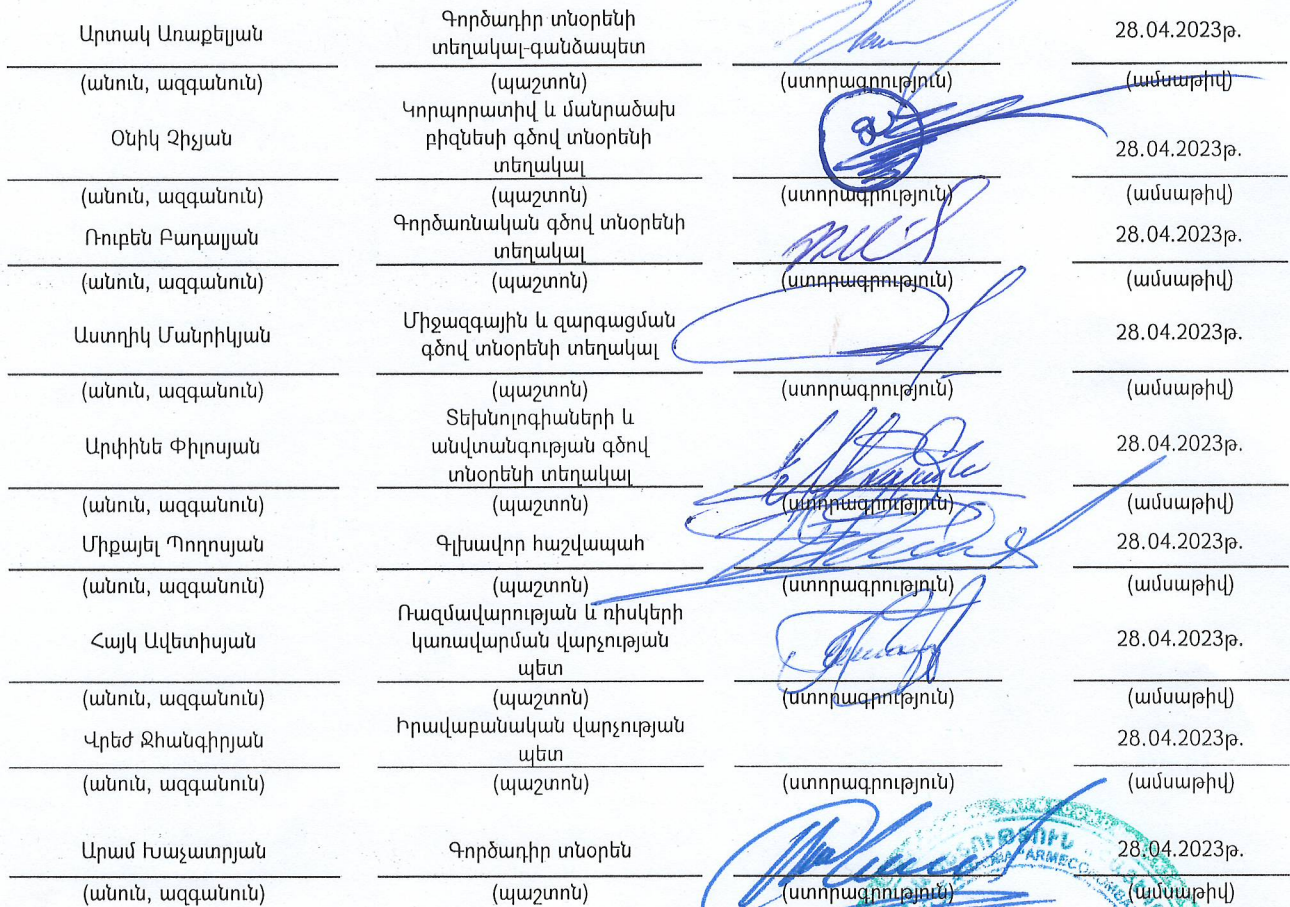 Արտակ Առաքելյան
Գործադիր տնօրենի
տեղակալ-գանձապետ
28.04.2023թ.
(անուն, ազգանուն) (պաշտոն) (ստորագրություն) (ամսաթիվ)
Օնիկ Չիչյան
Կորպորատիվ և մանրածախ
բիզնեսի գծով տնօրենի
տեղակալ
28.04.2023թ.
(անուն, ազգանուն) (պաշտոն) (ստորագրություն) (ամսաթիվ)
Ռուբեն Բադալյան
Գործառնական գծով տնօրենի
տեղակալ
28.04.2023թ.
(անուն, ազգանուն) (պաշտոն) (ստորագրություն) (ամսաթիվ)
Աստղիկ Մանրիկյան
Միջազգային և զարգացման
գծով տնօրենի տեղակալ
28.04.2023թ.
(անուն, ազգանուն) (պաշտոն) (ստորագրություն) (ամսաթիվ)
Արփինե Փիլոսյան
Տեխնոլոգիաների և
անվտանգության գծով
տնօրենի տեղակալ
28.04.2023թ.
(անուն, ազգանուն) (պաշտոն) (ստորագրություն) (ամսաթիվ)
Միքայել Պողոսյան
Գլխավոր հաշվապահ
28.04.2023թ.
(անուն, ազգանուն) (պաշտոն) (ստորագրություն) (ամսաթիվ)
Հայկ Ավետիսյան
Ռազմավարության և ռիսկերի
կառավարման վարչության
պետ
28.04.2023թ.
(անուն, ազգանուն) (պաշտոն) (ստորագրություն) (ամսաթիվ)
Վրեժ Ջհանգիրյան
Իրավաբանական վարչության
պետ
28.04.2023թ.
(անուն, ազգանուն) (պաշտոն) (ստորագրություն) (ամսաթիվ)
Արամ Խաչատրյան
Գործադիր տնօրեն
28.04.2023թ.
(անուն, ազգանուն) (պաշտոն) (ստորագրություն) (ամսաթիվ)